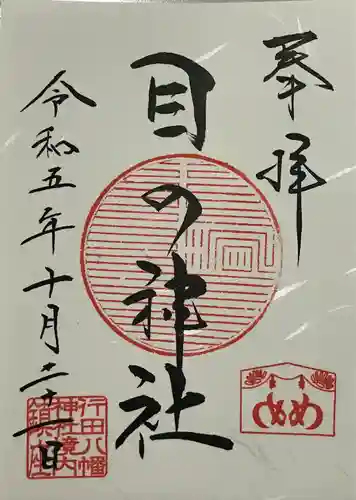 奉拝
目の神社
令和五年十月二十一日
行田八幡
神社境内
鎮座
め め